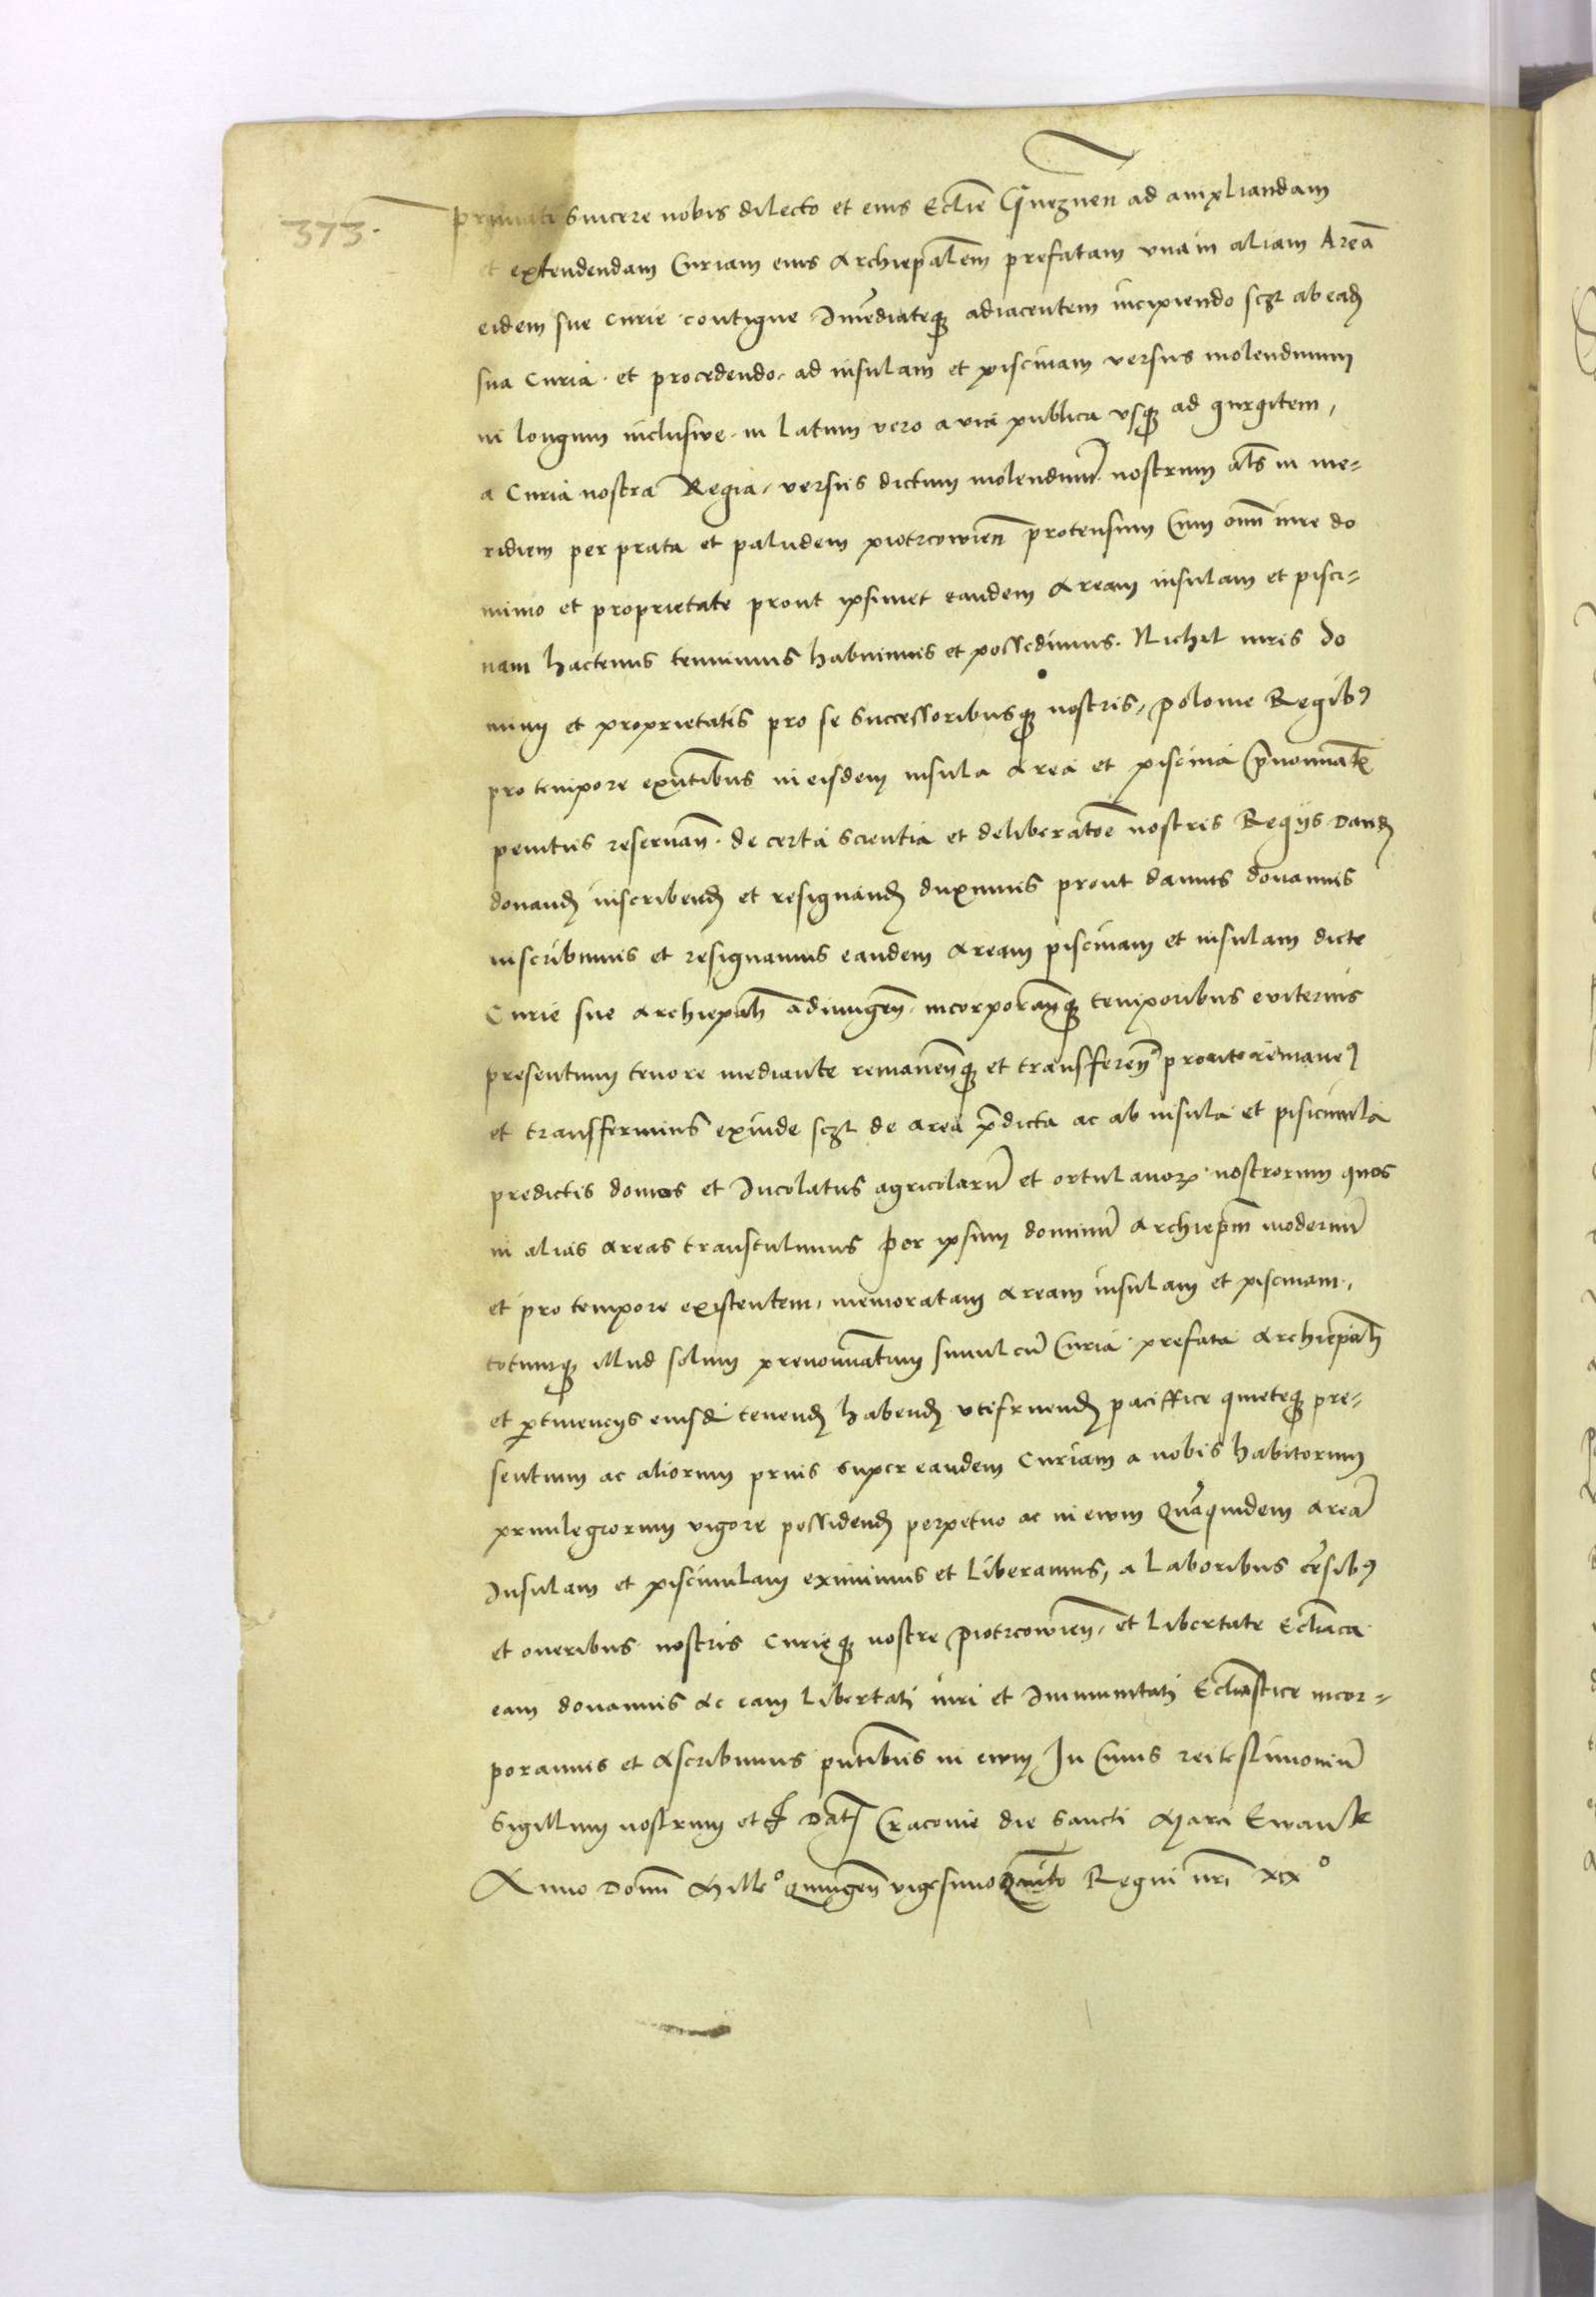 373.
primati sincere nobis dilecto et eius Ecclie Gneznen ad ampliandam
et extendendam Curiam eius Archiepalem prefatam vnam aliam Area
eidem sue curie contigue Immediateque adiacentem incipiendo sczt ab eadem
sua Curia et procedendo ad insulam et piscinam versus molendinum
in longum inclusive in latum vero a via publica vsque ad gurgitem,
a Curia nostra Regia, versus dictum molendinum nostrum als in me-
ridiem per prata et paludem piotrcowien protensum Cum omni iure do
minio et proprietate prout ipsimet eandem Aream insulam et pisci-
nam hactenus tenuimus habuimus et possedimus. Nichil iuris do
minij et proprietatis pro se successoribusque nostris, polonie Regibus
pro tempore existentibus in eisdem insula Area et piscina prenominatis
penitus reservan. de certa scientia et deliberatoe nostris Regijs dand
donand inscribend et resignand duximus prout damus donamus
inscribimus et resignamus eandem Aream piscinam et insulam dicte
Curie sue Archiepali adiungen, incorporanque temporibus eviternis
presentium tenore mediante removenque et transfferen prout removemus
et transfferimus exinde sczt de area predicta ac ab insula et piscinula
predictis domos et Incolatus agricolarum et ortulanorum nostrorum quos
in alias Areas transtulimus per ipsum dominum Archiepm modernum
et pro tempore existentem, memoratam Aream insulam et piscinam,
totumque illud solum prenominatum simul cum Curia prefata Archiepali
et pertinencijs eiusdem tenend habend vtifruend paciffice quieteque pre-
sentium ac aliorum prius super eandem Curiam a nobis habitorum
privilegiorum vigore possidend perpetuo ac in evum Quamquidem Aream
Insulam et piscinulam eximimus et liberamus, a laboribus censibus
et oneribus nostris curieque nostre piotrcowien, et libertate Eccliastica
eam donamus ac eam libertati iuri et Immunitati Ecclasticе incor-
poramus et Ascribimus pntibus in evum In Cuius rei testimonium
Sigillum nostrum etc Dat Cracovie die sancti Marci Ewanste
Anno Domini Mille° quingen vigesimoquinto Regni nri xix°